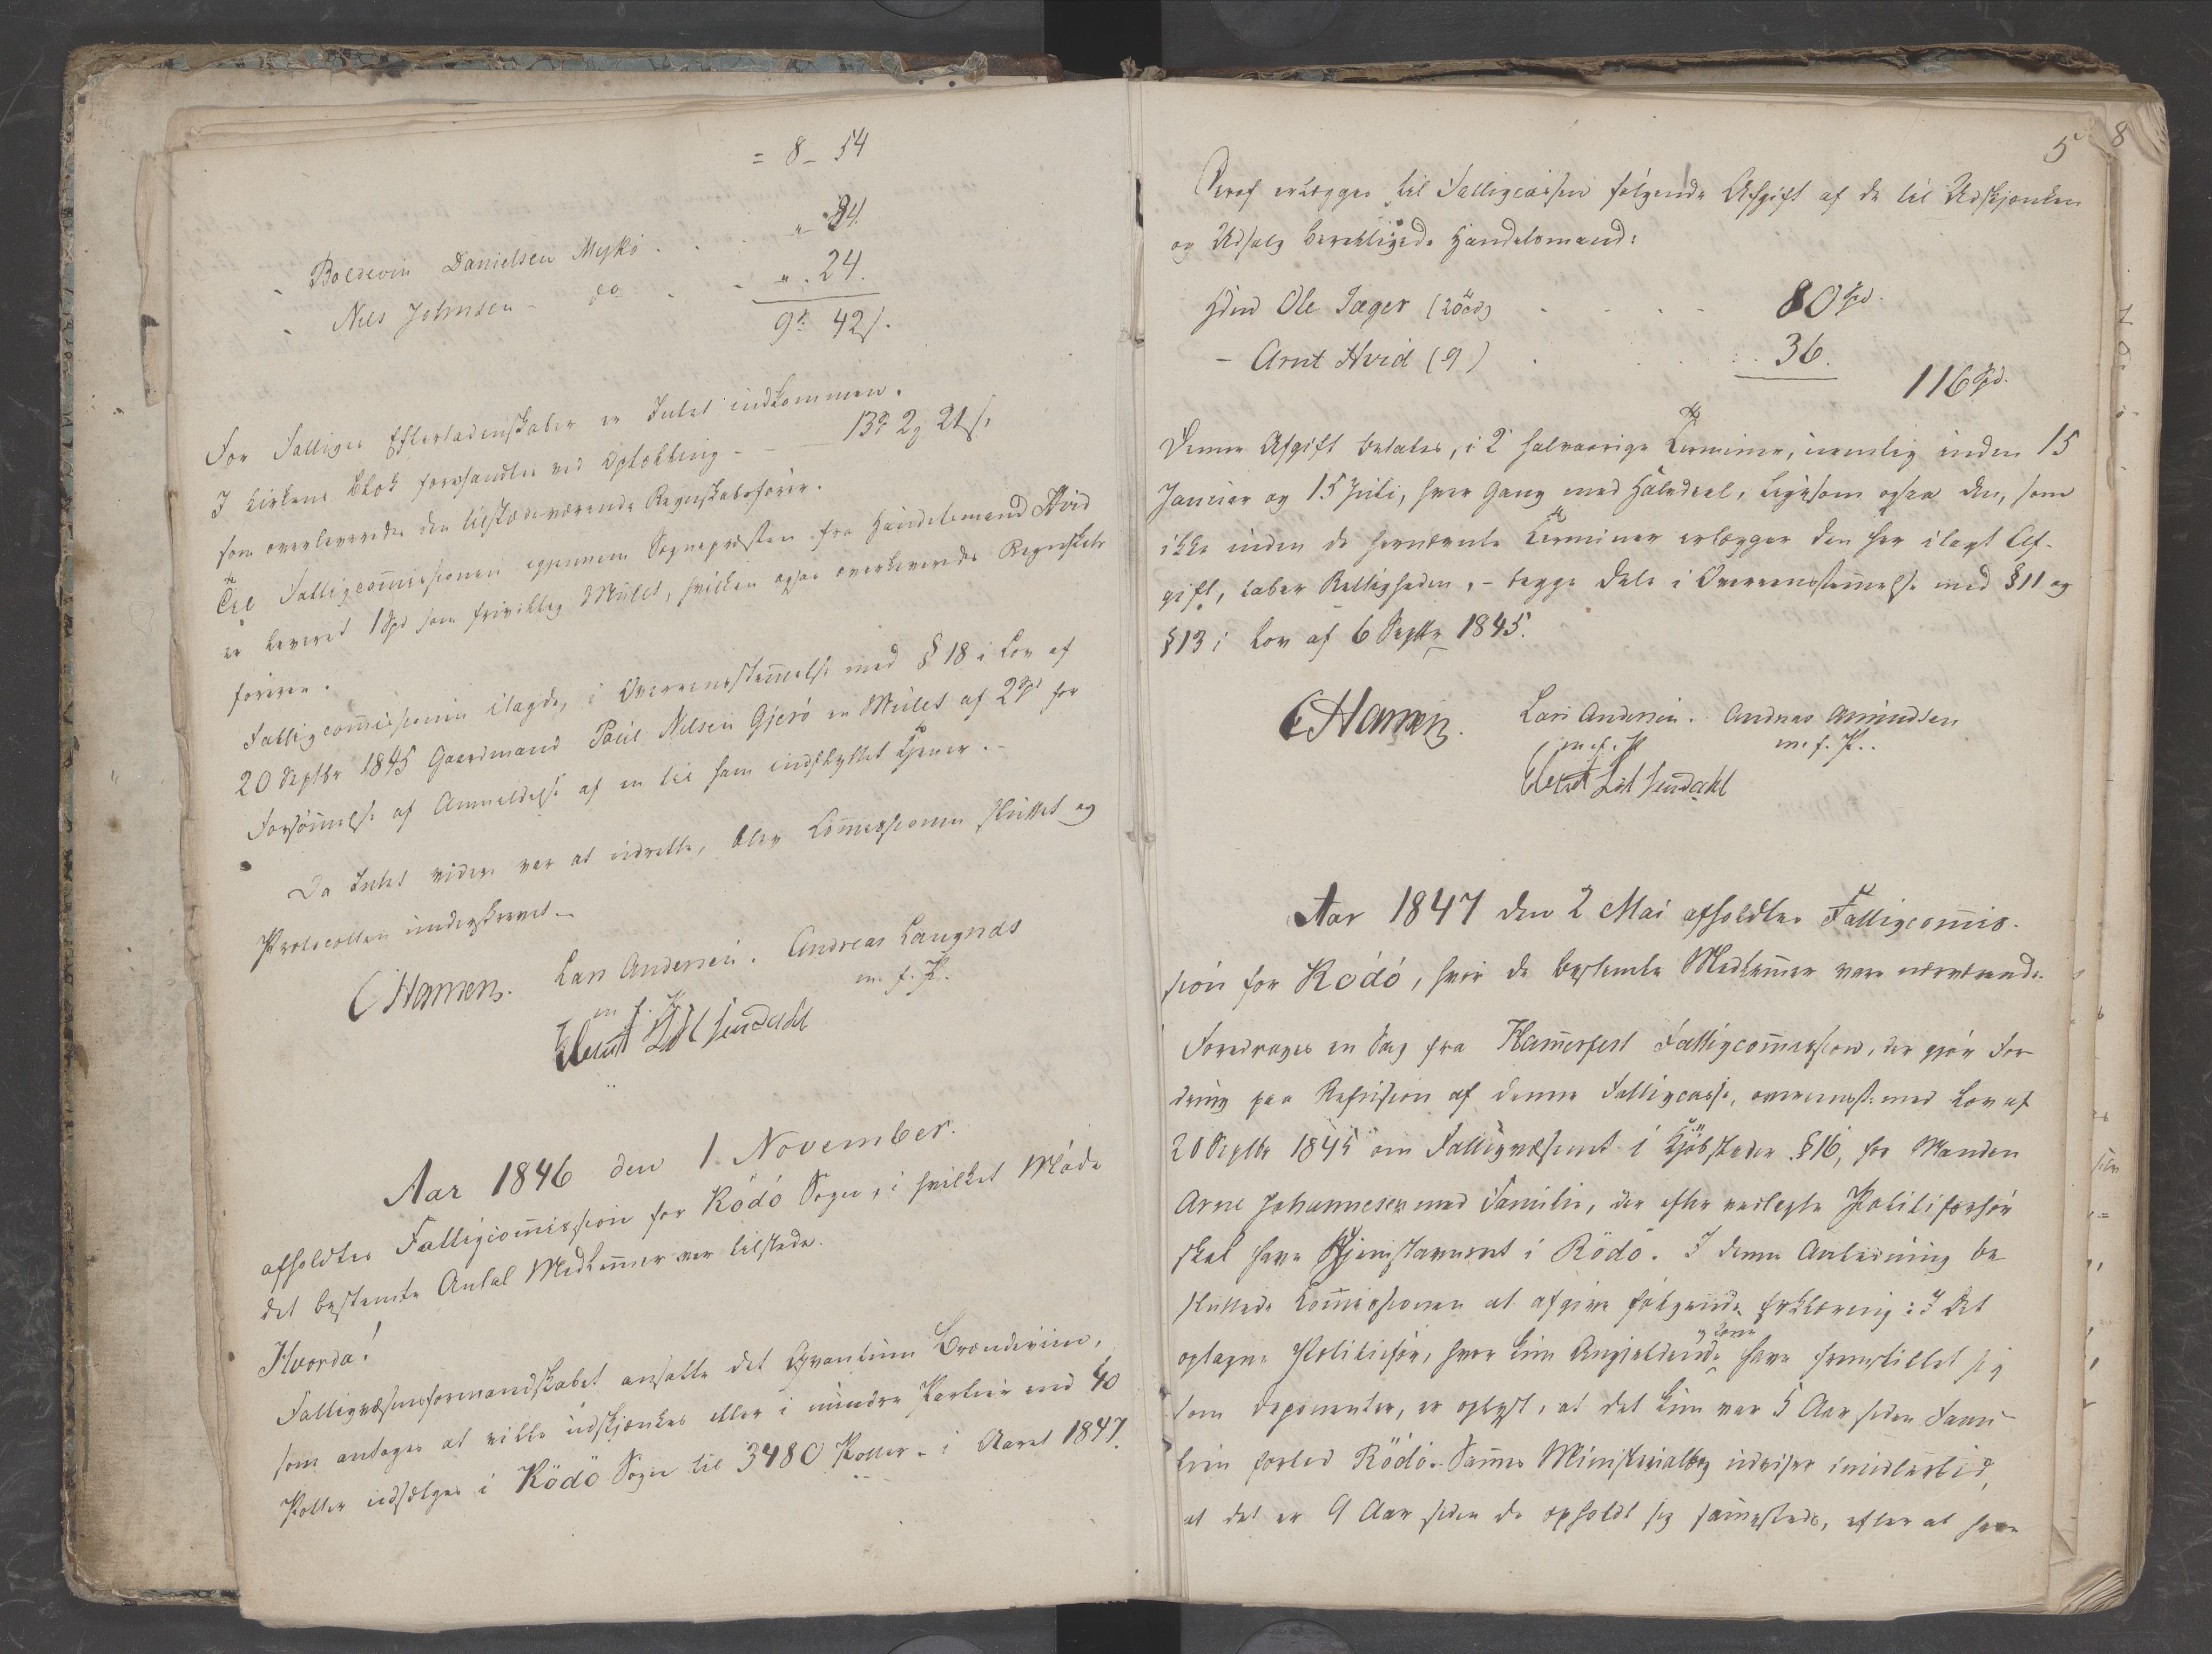 = 8 - 54
- Boldevin Danielsen Myko . . . " 24.
- Nils Johnsen - do . - " . 24.
9 42 s.
For Fattiges Efterladenskaber er Intet indkommen.
I Kirkens Blok forefandtes ved Optælling - - 13 2 21 s.
som overleveredes den tilstedeværende Regnskabsfører.
Til Fattigcommissionen igjennem Sognepræsten fra Handelsmand Hvid
er leveret 1 Spd som frivillig Mulct, hvilken ogsaa overleveredes Regnskabs
føreren.
Fattigcommissionen ilagde, i Overensstemmelse med § 18 i Lov af
20 Septbr 1845 Gaardmand Paul Nilsen Gjerö en Mulct af 2 Spd for
Forsömmelse af Anmeldelse af en til ham indflyttet Tjener. -
Da Intet videre var at udrette, blev Commissionen sluttet og
Protocollen underskrevet. -
C Hansen. Lars Andersen. Andreas Langnæs
m. f. P. m. f. P.
Aar 1846 den 1 November.
afholdtes Fattigcommission for Rödö Sogn, i hvilket Möde
det bestemte Antal Medlemmer var tilstede.
Hvorda!
Fattigvæsensformandskabet ansatte det Qvantum Brændeviin,
som antages at ville udskjænkes eller i mindre Partier end 40
Potter udsælges i Rödö Sogn til 3480 Potter - i Aaret 1847.
5
8
Deraf erlægges til Fattigcassen følgende Afgift af de til Udskjænken
og Udsalg berettigede Handelsmænd:
Hdmd Ole Jæger (20 - - - - 80 Spd.
- Arnt Hvid (9) . . . 36.
116 Spd.
Denne Afgift betales, i 2 halvaarige Terminer, nemlig inden 15
Januar og 15 Juli, hver Gang med Halvdeel, ligesom ogsaa den, som
ikke inden de hernævnte Terminer erlægger den ham ilagt Af-
gift, taber Rettigheden, - begge Dele i Overensstemmelse med § 11 og
§ 13 i Lov af 6 Septbr 1845.
C Hansen. Lars Andersen. Andreas Amundsen
m. f. P. m. f. P..
Aar 1847 den 2 Mai afholdtes Fattigcommis-
sion for Rödö, hvor de bestemte Medlemmer vare nærværende.
Foredroges en Sag fra Hammerfest Fattigcommission, der gjör For-
dring paa Refusion af denne Fattigcasse, overensst. med Lov af
20 Septbr 1845 om Fattigvæsenet i Kjöbstæder § 16, for Manden
Arne Johannesen med Familie, der efter vedlagte Politiforhör
skal have Hjemstavnsret i Rödö. I denne Anledning be
sluttede Commissionen at afgive følgende Erklæring: I det
optagne Politiforhör, hvor kun Angjeldende og Kone have fremstillet sig
som Deponenter, er oplyst, at det kun var 5 Aar siden Fami-
lien forlod Rödö. Samme Ministerialbog udviser imidlertid,
at det er 9 Aar siden de opholdt sig sammesteds, efter at have